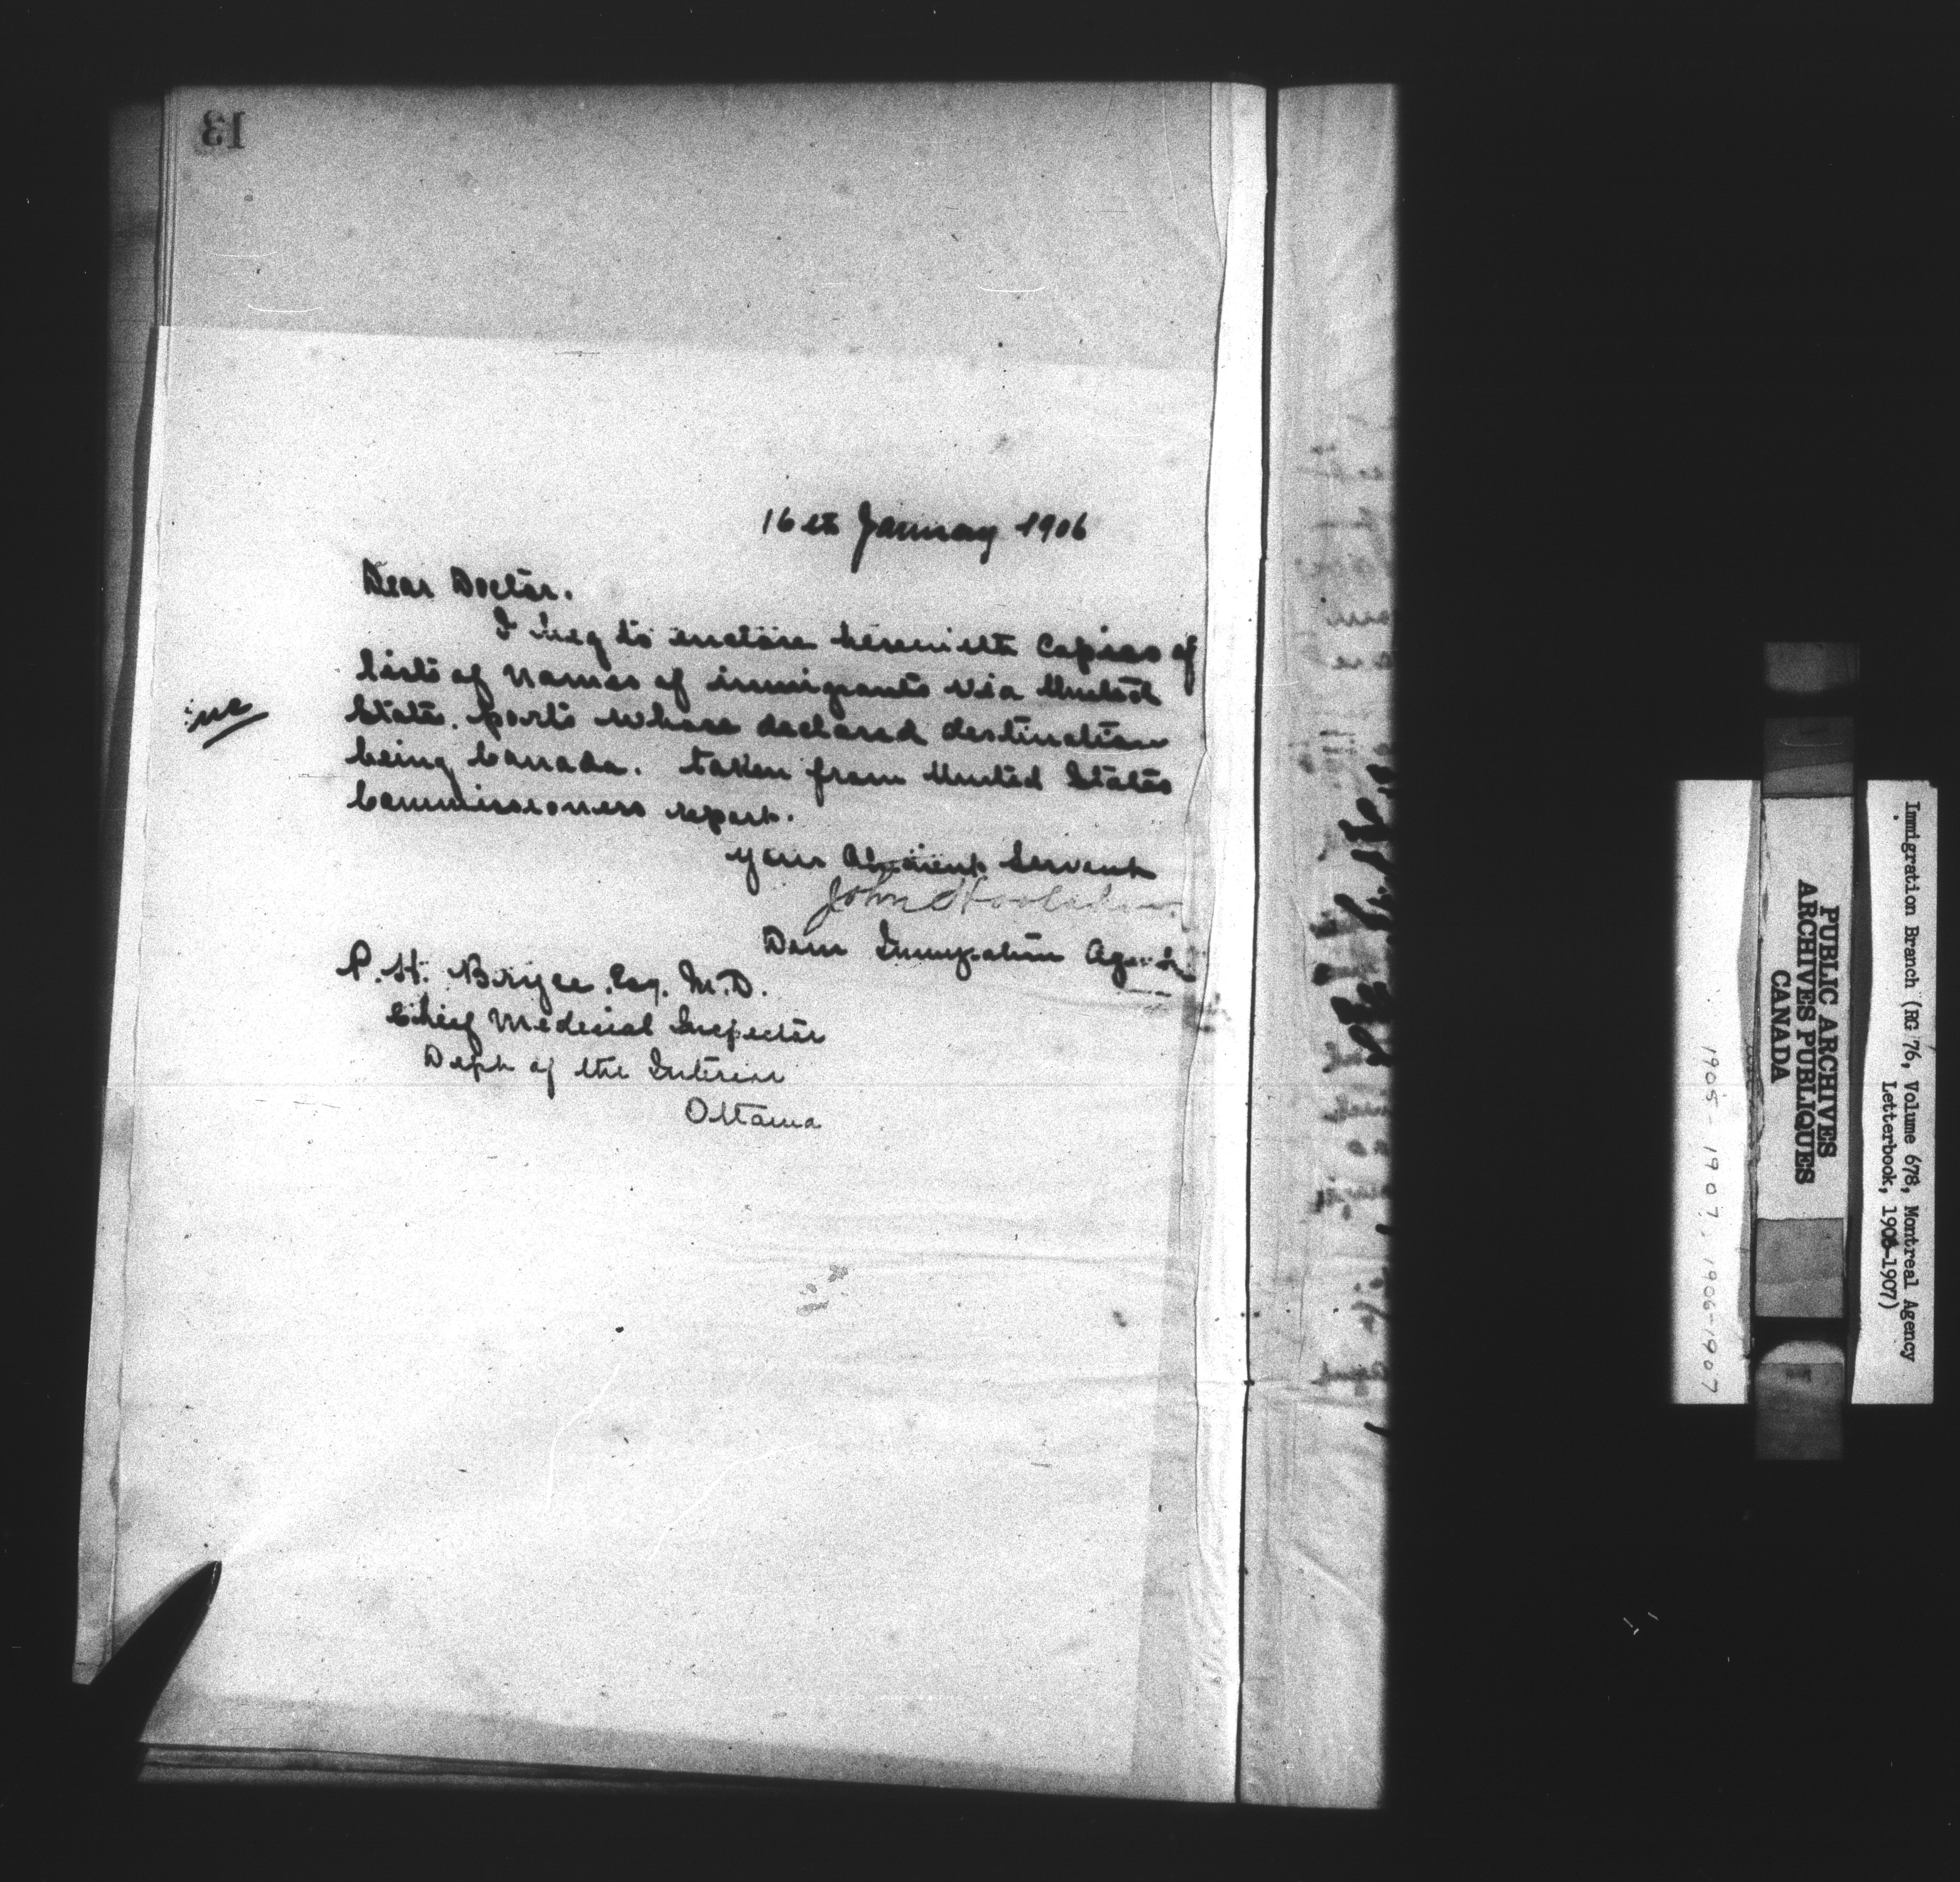 13
16th January 1906
Dear Doctor.
I beg to enclose herewith Copies of
Lists of Names of immigrants via United
States. ports whose declared destination
being Canada. taken from United States
Commissioners report.
Your Obedient Servant
John Hoolahan
Dom Immigration Agent
P. H. Bryce. Esq. M.D.
Chief Medecial Inspector
Dept of the Interior
Ottawa
Immigration Branch (RG 76, Volume 678, Montreal Agency
Letterbook, 1906-1907)
PUBLIC ARCHIVES
ARCHIVES PUBLIQUES
CANADA
1905-1907, 1906-1907